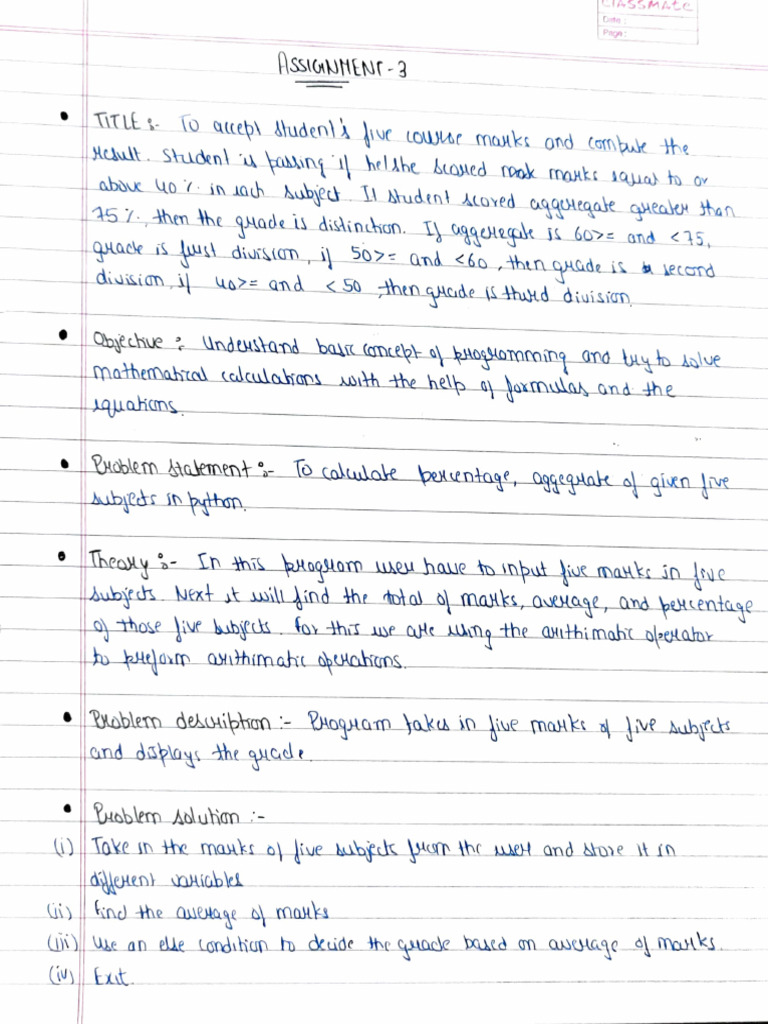 CLASSMATE
Date :
Page :
ASSIGNMENT - 3
• TITLE :- To accept student's five course marks and compute the
result. Student is passing if he/she scored marks equal to or
above 40 % in each subject. If student scored aggeregate greater than
75 %, then the grade is distinction. If aggeregate is 60>= and <75,
grade is first division, if 50>= and <60, then grade is second
division, if 40>= and <50, then grade is third division.
• Objective : Understand basic concept of programming and try to solve
mathematical calculations with the help of formulas and the
equations.
• Problem statement :- To calculate percentage, aggegrate of given five
subjects in python.
• Theory :- In this program user have to input five marks in five
subjects. Next it will find the total of marks, average, and percentage
of those five subjects. For this we are using the arithimatic operator
to preform arithimatic operations.
• Problem description :- Program takes in five marks of five subjects
and displays the grade.
• Problem solution :-
(i) Take in the marks of five subjects from the user and store it in
different variables
(ii) Find the average of marks
(iii) Use an else condition to decide the grade based on average of marks.
(iv) Exit.